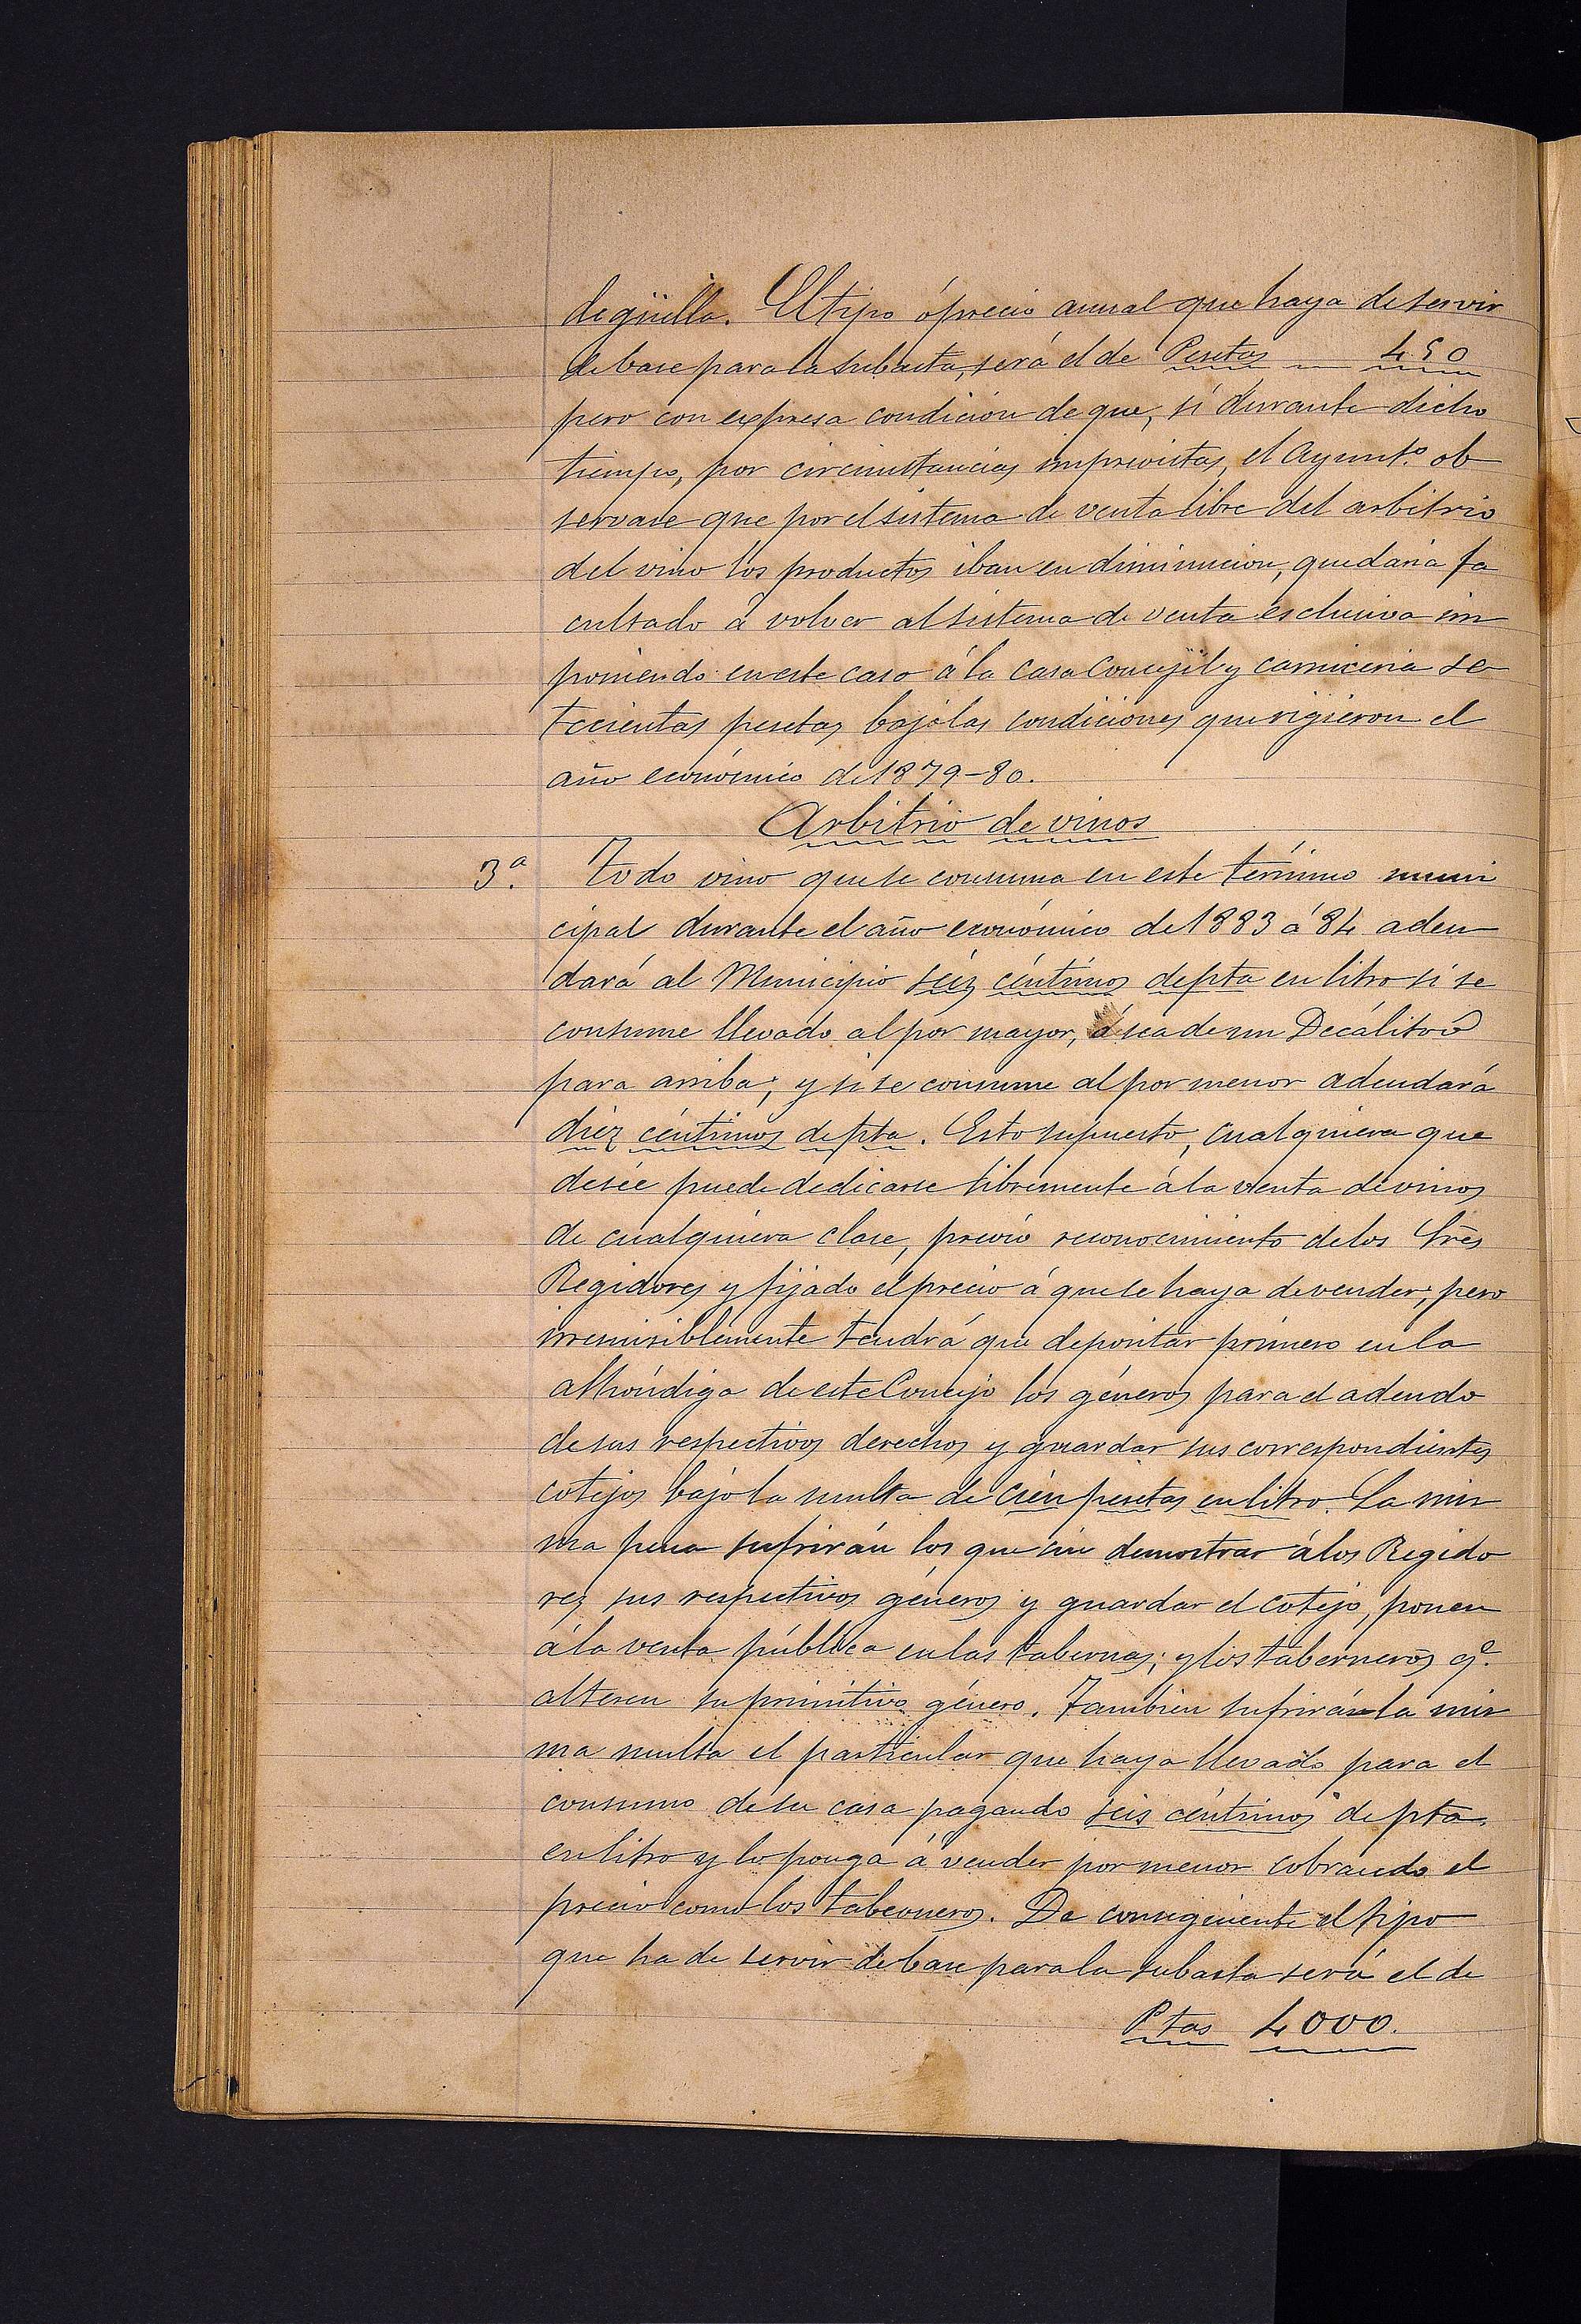 degüella. El tipo ó precio anual que haya de servir
de base para la subasta, será el de Pesetas 450
pero con expresa condicion de que, si durante dicho
tiempo, por circunstancias imprevistas, el Ayunt.º ob
servase que por el sistema de venta libre del arbitrio
del vino los productos iban en diminucion, quedaria fa
cultado á volver al sistema de venta esclusiva im
poniendo en este caso á la casa Concejil y carniceria se
tecientas pesetas bajo las condiciones que rigieron el
año económico de 1879-80.
Arbitrio de vinos
3.ª Todo vino que se consuma en este término muni
cipal durante el año económico de 1883 á 84 adeu
dará al Municipio seis céntimos de pta en litro si se
consume llevado al por mayor, ó sea de un Decálitro
para arriba; y si se consume al por menor adeudará
diez céntimos de pta. Esto supuesto, cualquiera que
desée puede dedicarse libremente á la venta de vinos
de cualquiera clase, previo reconocimiento de los Srēs
Regidores y fijado el precio á que se haya de vender; pero
irremisiblemente tendrá que depositar primero en la
alhóndiga de este Concejo los géneros para el adeudo
de sus respectivos derechos y guardar sus correspondientes
cotejos bajo la multa de cien pesetas en litro. La mis
ma pena sufrirán los que sin demostrar á los Regido
res sus respectivos géneros y guardar el cotejo, ponen
á la venta pública en las tabernas; y los taberneros q.e
alteren su primitivo género. Tambien sufrirán la mis
ma multa el particular que haya llevado para el
consumo de su casa pagando seis céntimos de pta.
en litro y lo ponga á vender por menor cobrando el
precio como los taberneros. De consiguiente el tipo
que ha de servir de base para la subasta será el de
Ptas 4000.